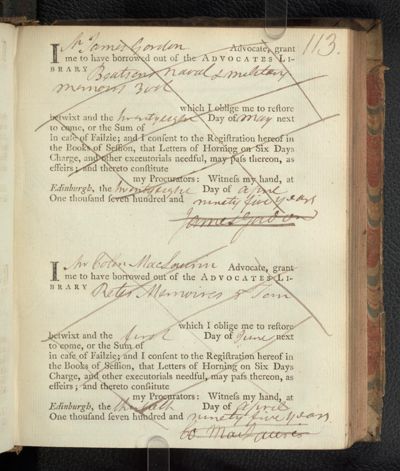 113.
I Mr James Gordon Advocate, grant
me to have borrowed out of the ADVOCATES LI-
BRARY Beatsons naval & military
memoirs 3 vol
which I oblige me to reſtore
betwixt and the twentyeight Day of May next
to come, or the Sum of
in caſe of Failzie; and I conſent to the Regiſtration hereof in
the Books of Seſſion, that Letters of Horning on Six Days
Charge, and other executorials needful, may paſs thereon, as
effeirs; and thereto conſtitute
my Procurators: Witneſs my hand, at
Edinburgh, the twentyeight Day of April
One thouſand ſeven hundred and ninety five years
James Gordon
I Mr Colin MacLaurin Advocate, grant
me to have borrowed out of the ADVOCATES LI-
BRARY Retz Memoires
which I oblige me to reſtore
betwixt and the first Day of June next
to come, or the Sum of
in caſe of Failzie; and I conſent to the Regiſtration hereof in
the Books of Seſſion, that Letters of Horning on Six Days
Charge, and other executorials needful, may paſs thereon, as
effeirs; and thereto conſtitute
my Procurators: Witneſs my hand, at
Edinburgh, the Day of April
One thouſand ſeven hundred and ninety five years